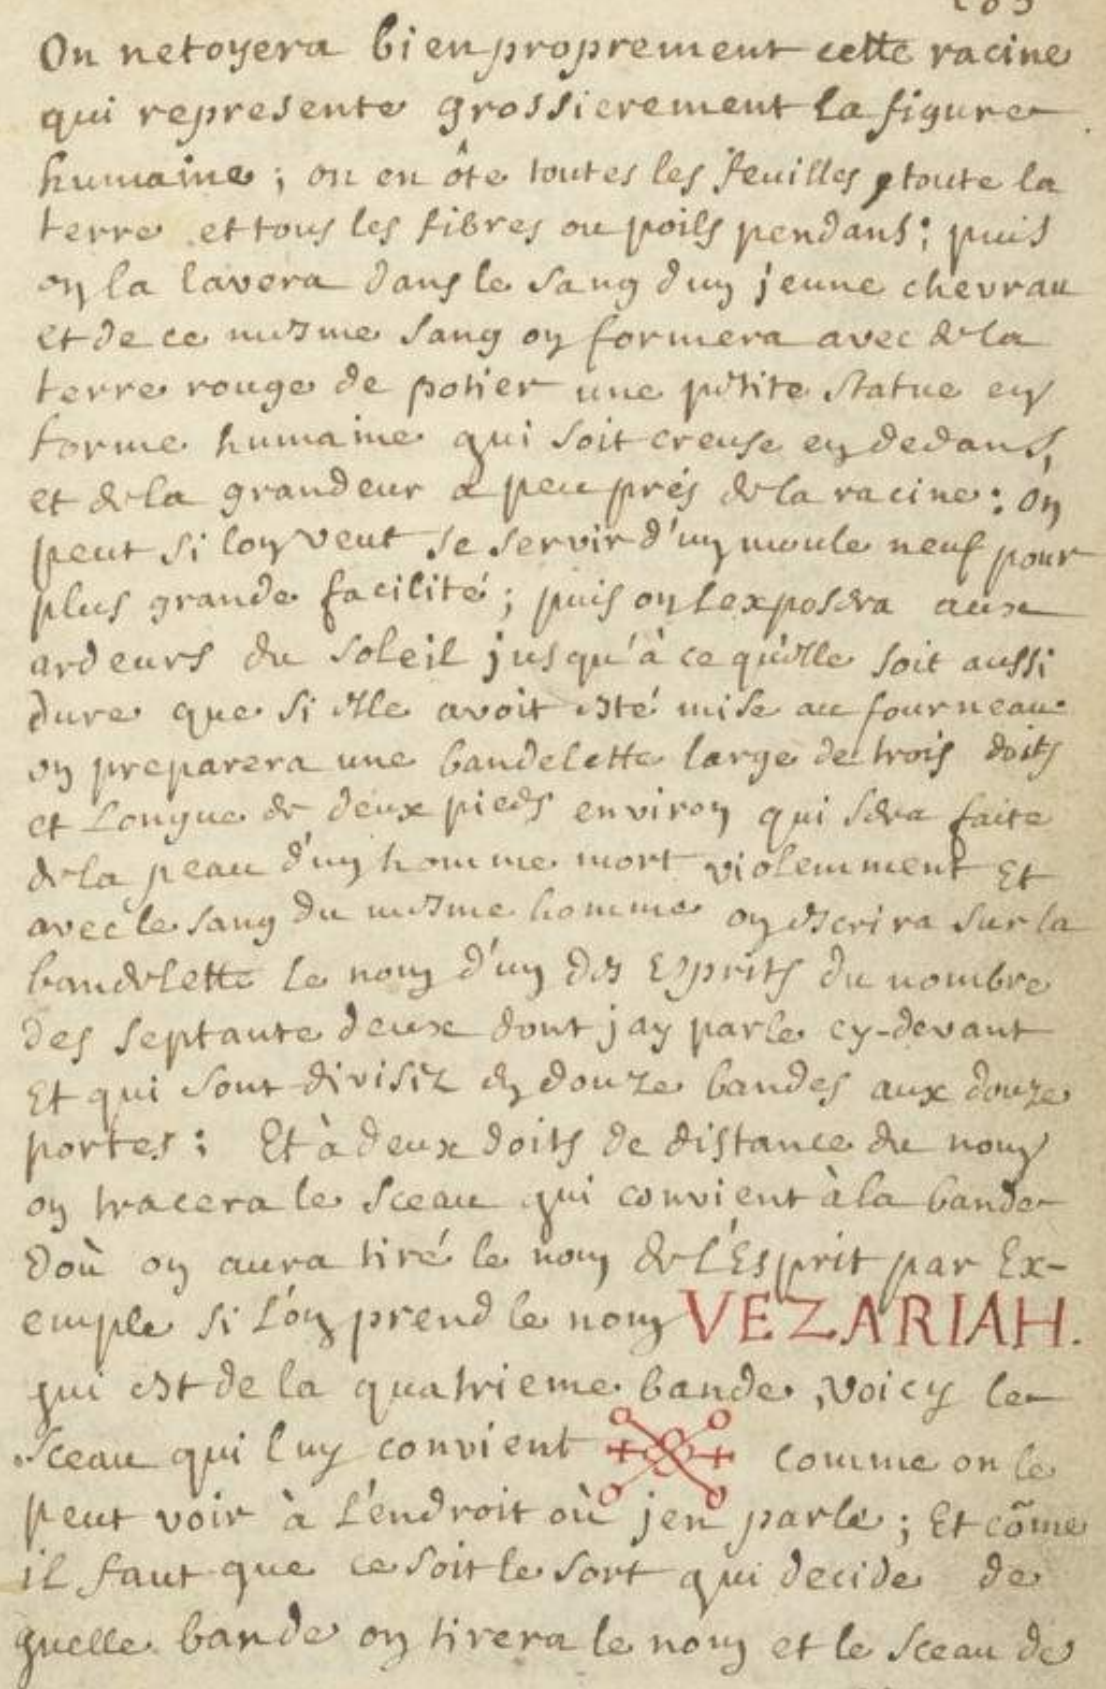 On netoyera bien proprement cette racine
qui represente grossierement la figure
humaine ; on en ôte toutes les feuilles, toute la
terre et tous les fibres ou poils pendans ; puis
on la lavera dans le sang d'un jeune chevrau
et de ce mesme sang on formera avec de la
terre rouge de potier une petite statue en
forme humaine qui soit creuse en dedans,
et de la grandeur a peu prés de la racine : on
peut si lon veut se servir d'un moule neuf pour
plus grande facilité ; puis on lexposera aux
ardeurs du soleil jusqu'à ce qu'elle soit aussi
dure que si elle avoit esté mise au fourneau
on preparera une bandelette large de trois doits
et Longue de deux pieds environ qui sera faite
de la peau d'un homme mort violemment Et
avec le sang du mesme homme on escrira sur la
bandelette le nom d'un des Esprits du nombre
des septante deux dont jay parle cy-devant
Et qui sont divisez en douze bandes aux douze
portes : Et à deux doits de distance du nom
on tracera le sceau qui convient à la bande
doù on aura tiré le nom de l'Esprit par Ex-
emple si L'on prend le nom VEZARIAH.
qui est de la quatrieme bande, voicy le
sceau qui luy convient comme on le
peut voir à L'endroit où jen parle ; Et cõme
il faut que ce soit le sort qui decide de
quelle bande on tirera le nom et le sceau de